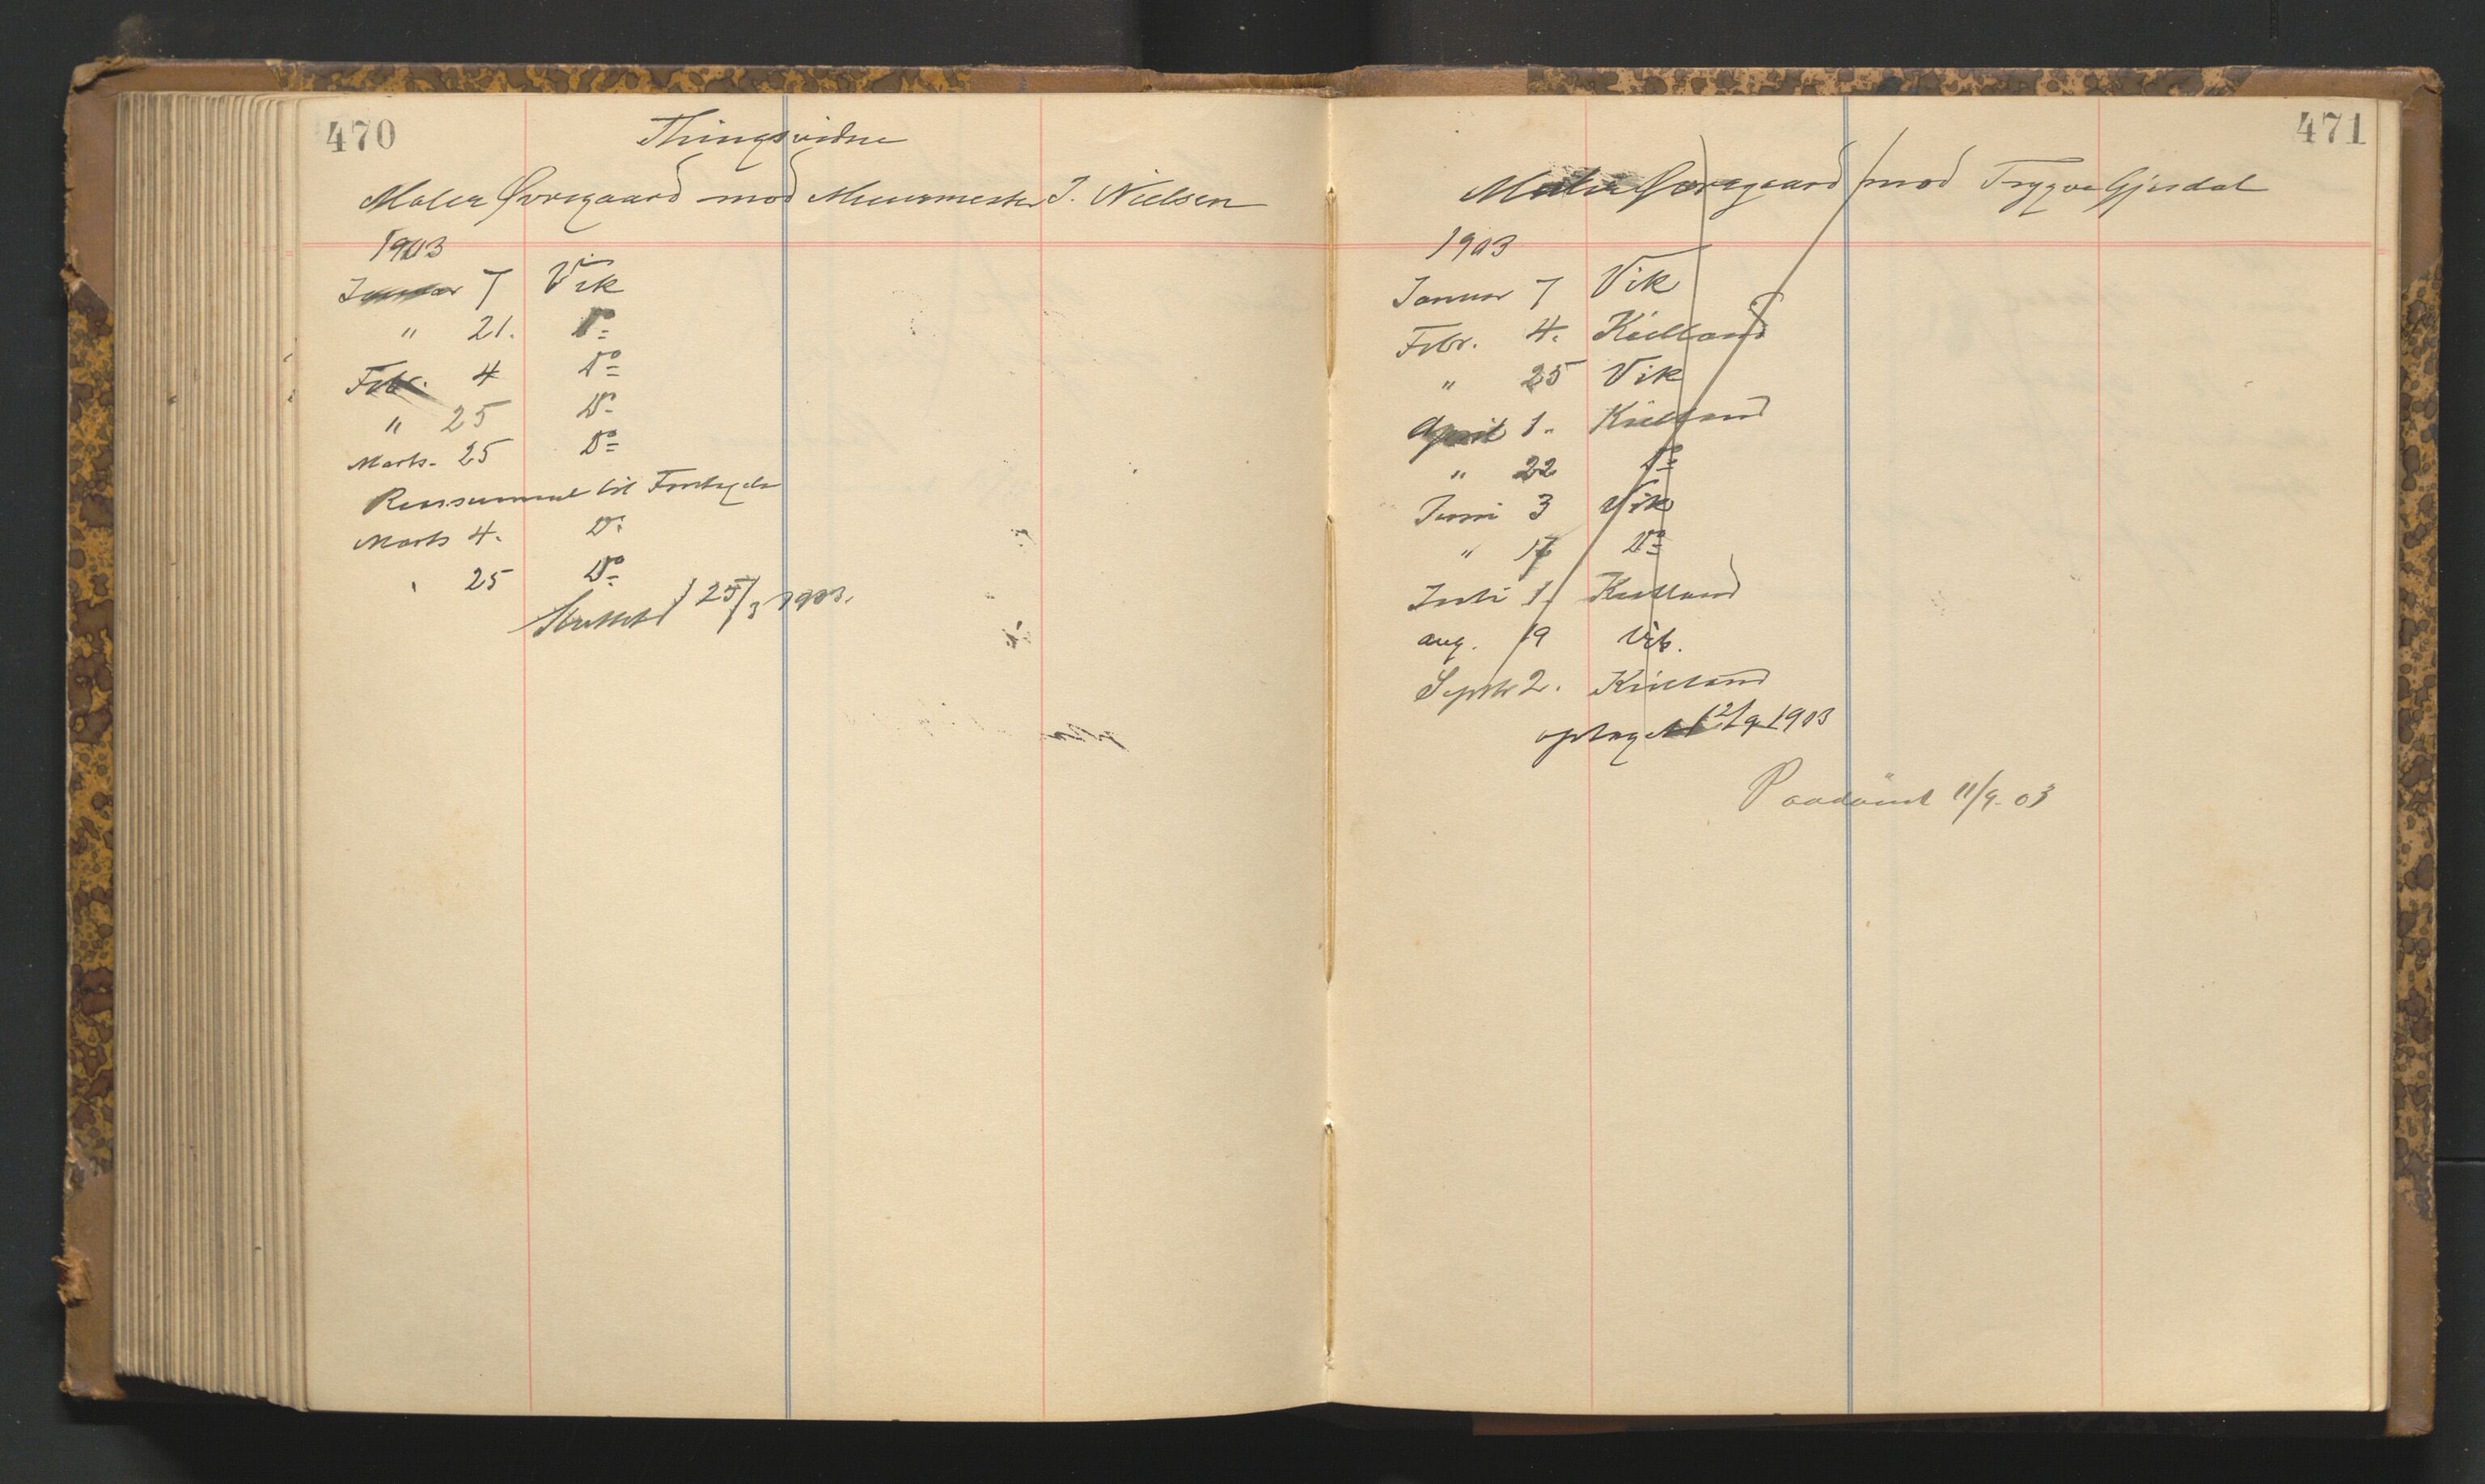 470
Thingsvidne
Maler Øvregaard mod Muurmester J. Nielsen
1903
Januar 7 Vik
" 21. Do
Febr. 4 Do
" 25 Do
Marts. 25 Do
til
Marts 4. Do
25 Do
Sluttet 25/3 1903.
471
Maler Øvregaard mod Trygve Gjesdal
1903
Januar 7 Vik
Febr. 4. Kielland
" 25 Vik
April 1. Kielland
" 22 Do
Juni 3 Vik
" 17 Do
Juli 1. Kielland
aug. 19 Vik.
Septbr 2. Kielland
optaget 2/9 1903
Paadömt 11/9-03